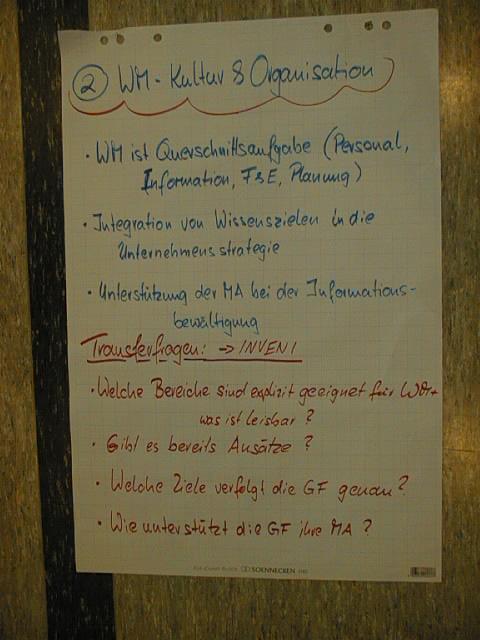 2 WM - Kultur & Organisation
· WM ist Querschnittsaufgabe (Personal,
Information, F&E, Planung)
· Integration von Wissenszielen in die
Unternehmensstrategie
· Unterstützung der MA bei der Informations-
bewältigung
Transferfragen: → INVENI
· Welche Bereiche sind explizit geeignet für WM +
was ist leisbar ?
· Gibt es bereits Ansätze ?
· Welche Ziele verfolgt die GF genau ?
· Wie unterstützt die GF ihre MA ?
SOENNECKEN